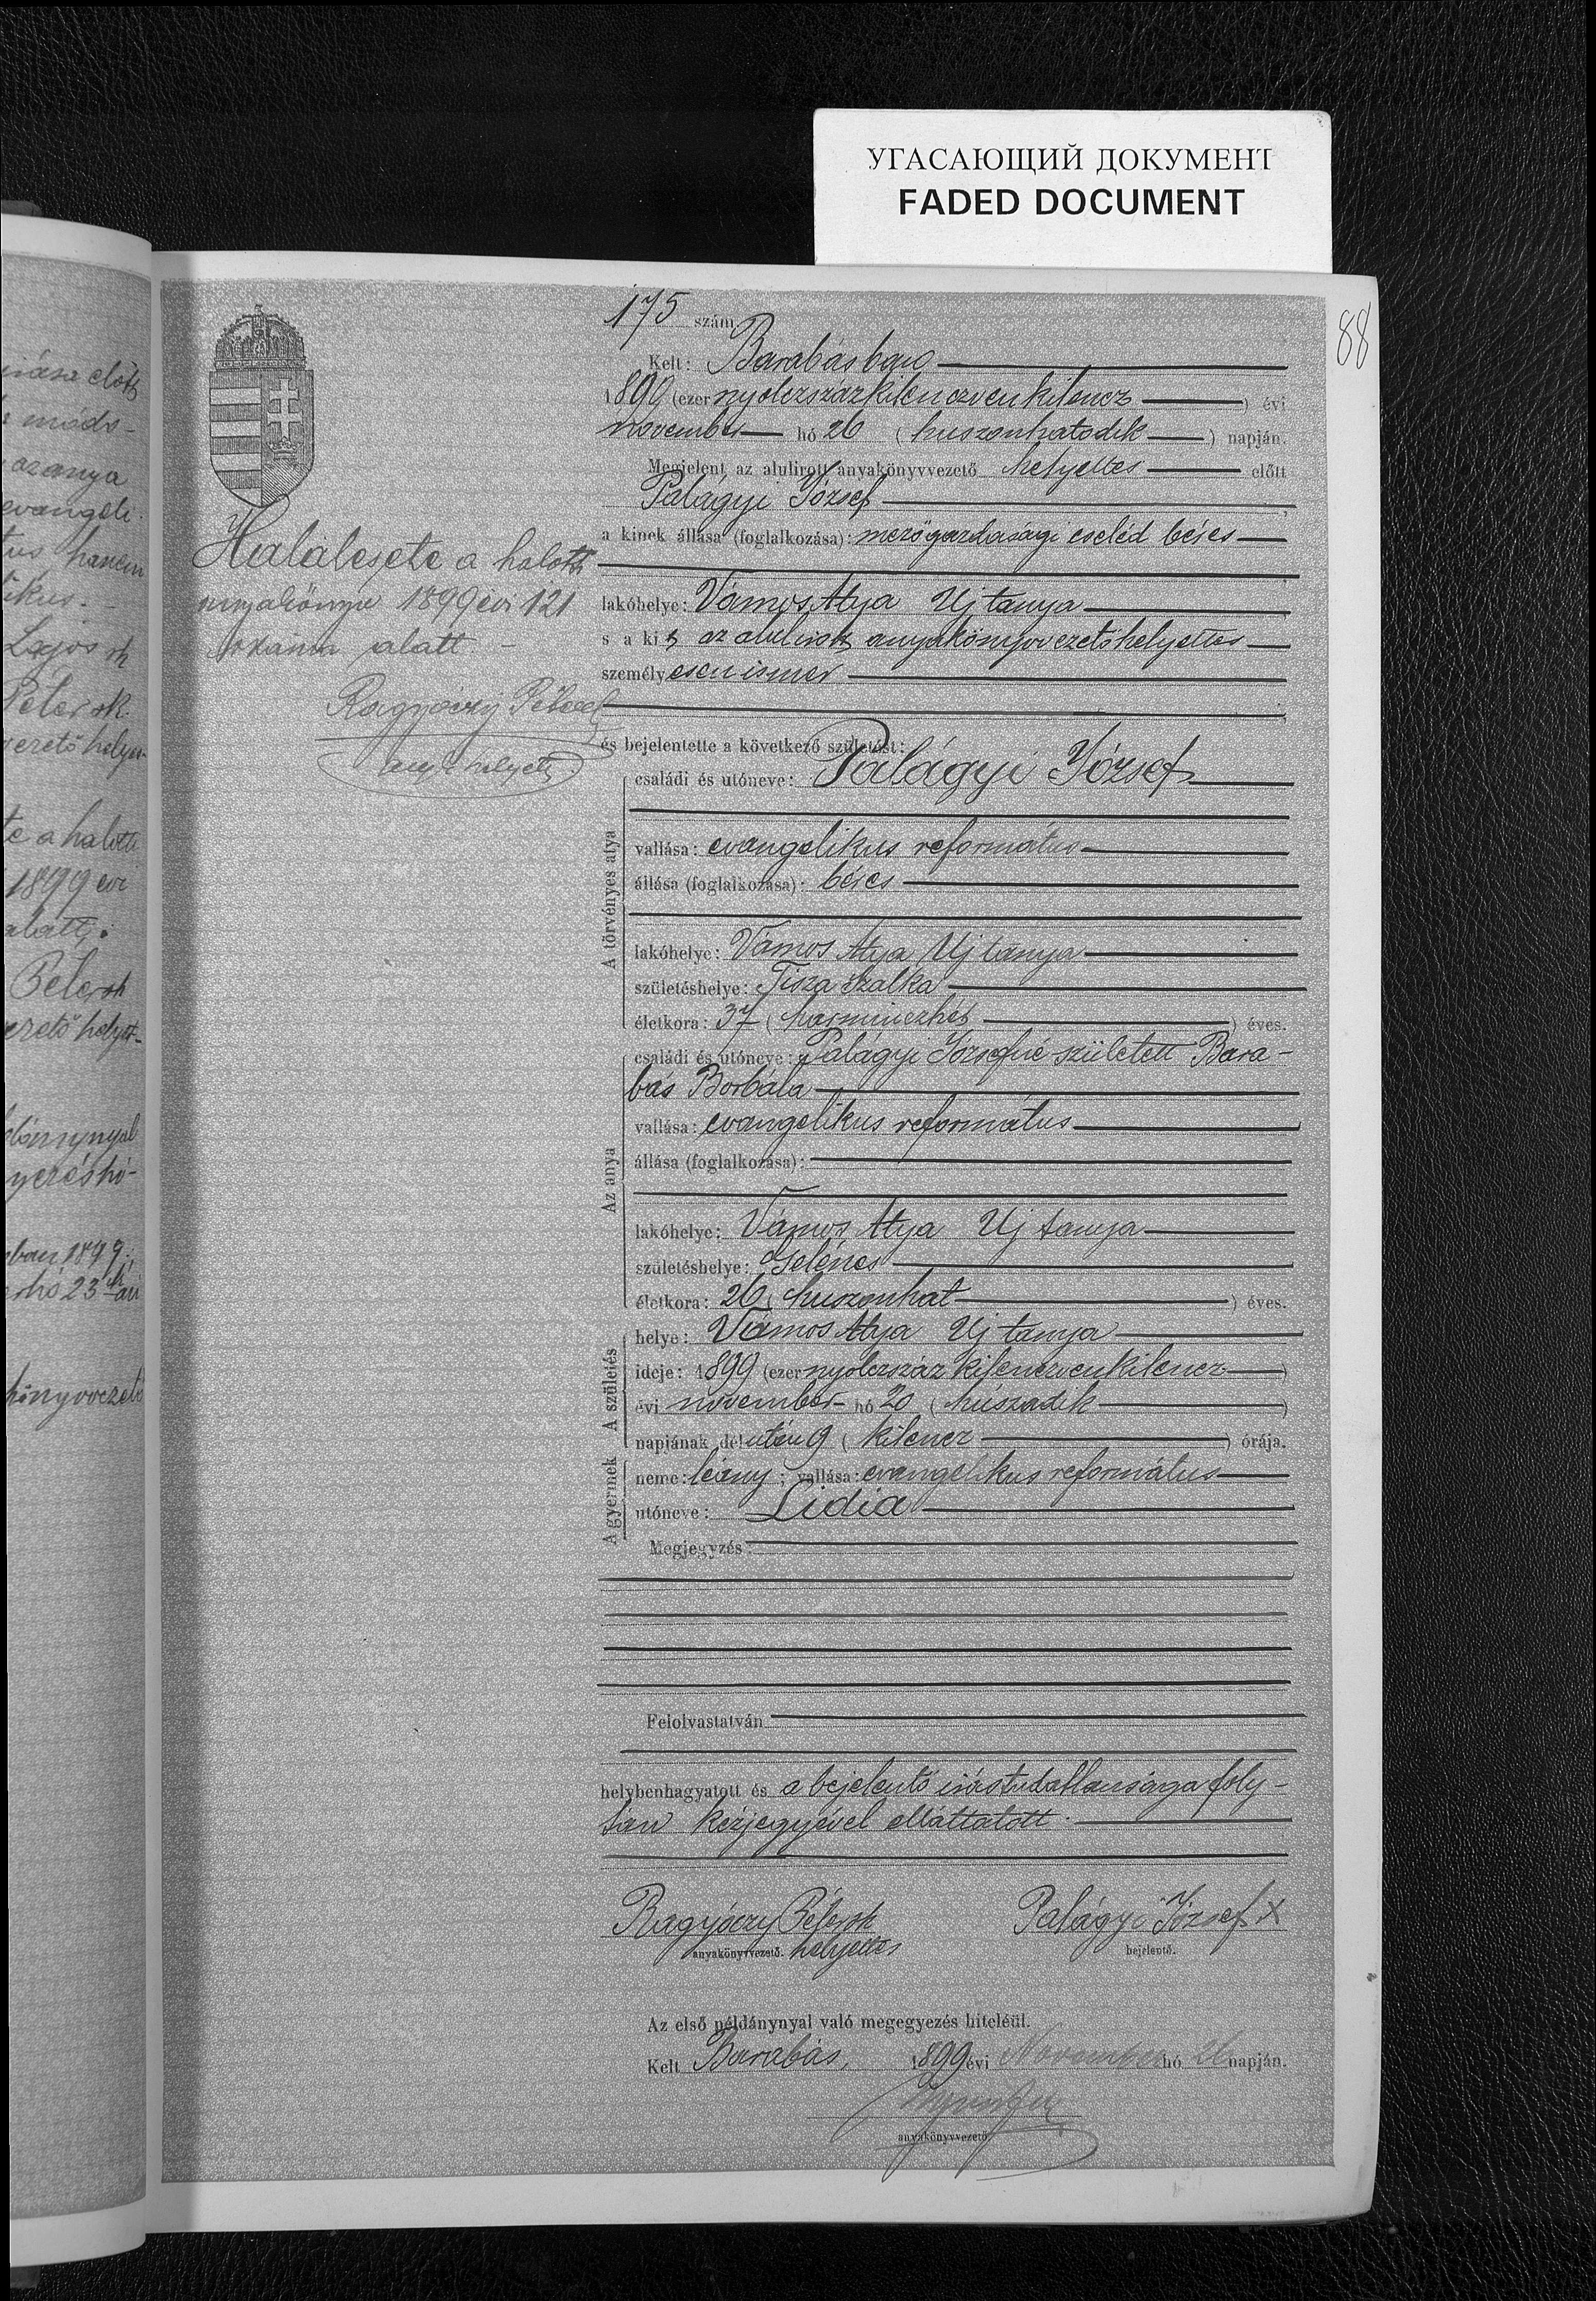 УГАСАЮЩИЙ ДОКУМЕНТ
FADED DOCUMENT
88
175 szám.
Kelt: Barabásban
1899 (ezer nyolczszázkilenczvenkilencz) évi
november hó 26 (huszonhatodik) napján.
Megjelent az alulirott anyakönyvvezető helyettes előtt
Palágyi József
a kinek állása (foglalkozása): mezőgazdasági cseléd béres
lakóhelye: Vámos Atya Uj tanya
s a kit az alulirott anyakönyvvezető helyettes
személyesen ismer
és bejelentette a következő születést:
A törvényes atya
családi és utóneve: Palágyi József
vallása: evangelikus református
állása (foglalkozása): béres
lakóhelye: Vámos Atya Uj tanya
születéshelye: Tisza Szalka
életkora: 37 (harminczhét) éves.
Az anya
családi és utóneve: Palágyi Józsefné született Bara-
bás Borbála
vallása: evangelikus református
állása (foglalkozása):
lakóhelye: Vámos Atya Uj tanya
születéshelye: Gelénes
életkora: 26 (huszonhat) éves.
A születés
helye: Vámos Atya Uj tanya
ideje: 1899 (ezer nyolczszáz kilenczvenkilencz)
évi november hó 20 (húszadik)
napjának délután 9 (kilencz) órája.
A gyermek
neme: leány; vallása: evangelikus református
utóneve: Lidia
Megjegyzés:
Felolvastatván
helybenhagyatott és a bejelentő irástudatlansága foly-
tán kézjegyével elláttatott.
Ragyóczy Péter sk Palágyi József X
anyakönyvvezető. helyettes bejelentő.
Az első példánynyal való megegyezés hiteléül.
Kelt Barabás, 1899 évi November hó 26 napján.
anyakönyvvezető.
Halálesete a halotti
anyakönyv 1899 évi 121
szám alatt.
Ragyóczy Péter
anyk helyett
irása előtt
módo-
az anya
evangeli-
tus hanem
likus.
Lajos sk
Péter sk.
vezető helyet-
te a halotti
1899 évi
alatt.
Péter sk
vezető helyet-
dánynyal
gyezés hi-
ban 1899.
hó 23 án
könyvvezető